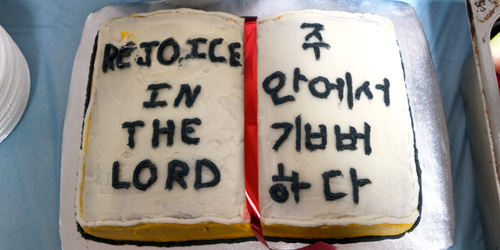 REJOICE
IN
THE
LORD
주
안에서
기뻐
하다